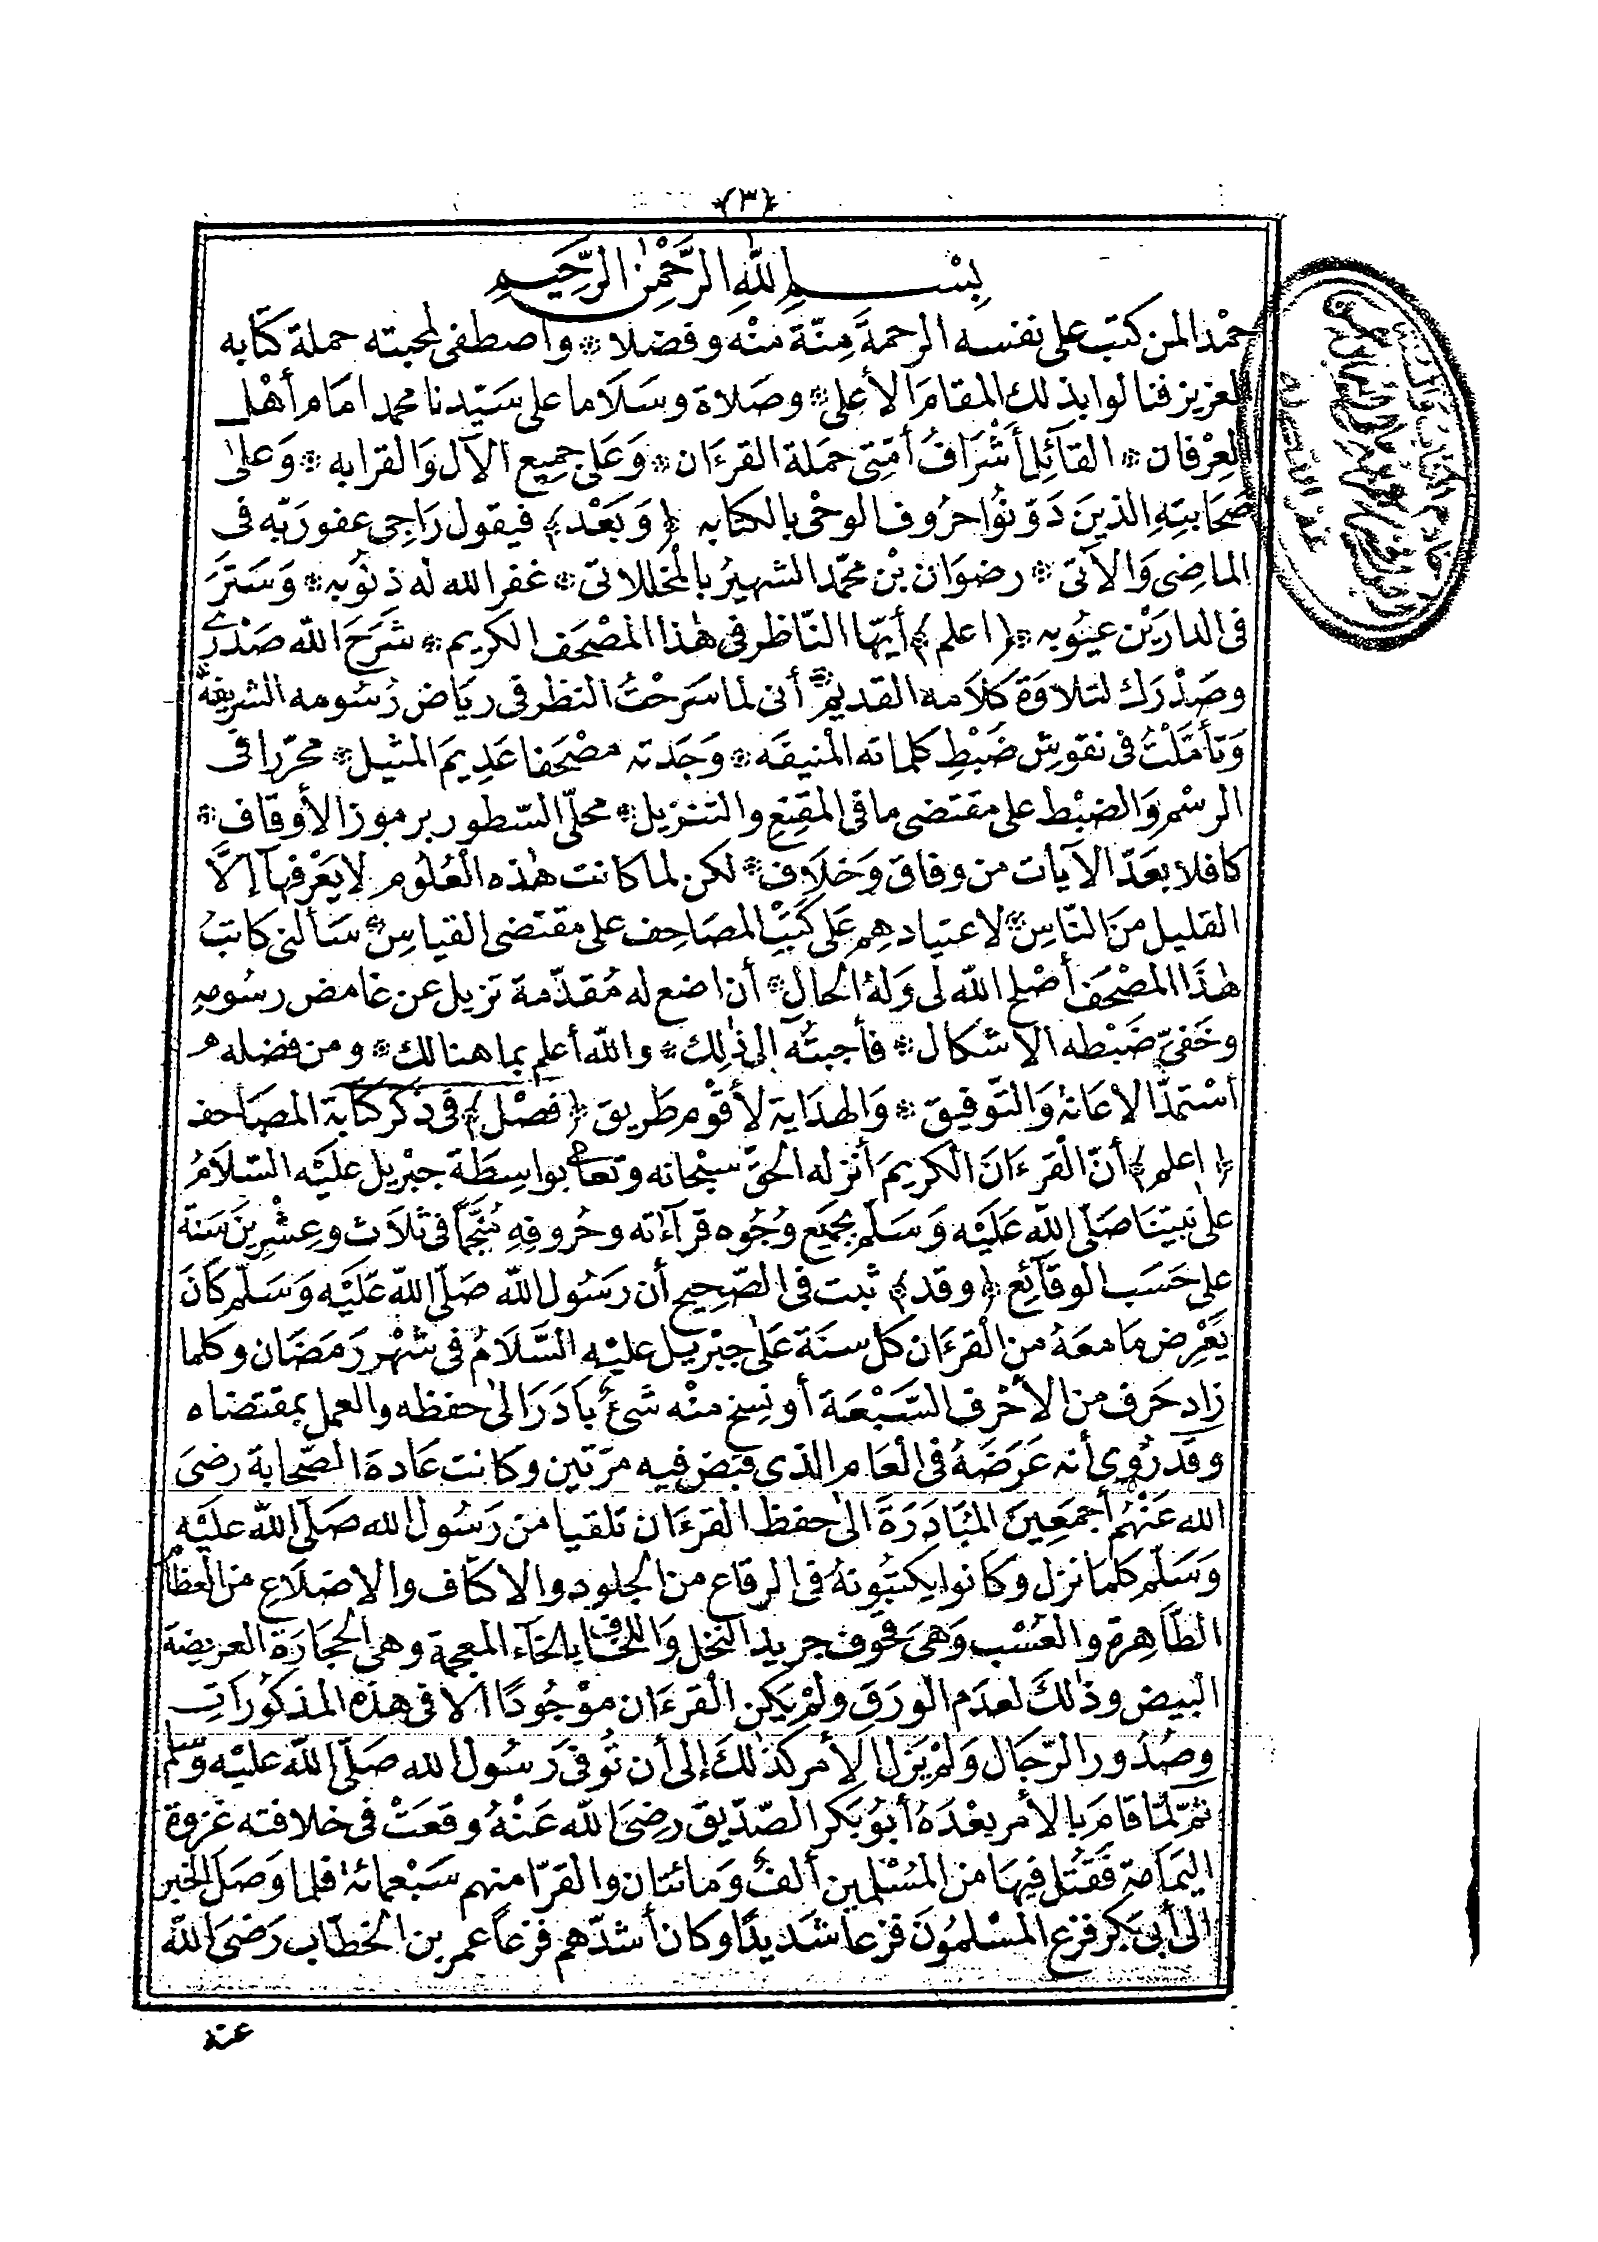 ﴿٣﴾
بِسْمِ اللهِ الرَّحْمٰنِ الرَّحِيمِ
حمْدا لمن كتب على نفسه الرحمةَ مِنّة منْه وفضلا * واصطفى لمحبته حملة كتابه
العزيز فنالوا بذلك المقامَ الأعلى * وصلاة وسَلَاما على سَيّدنا محمد امَام أهْل
العِرْفان * القآئِل أَشْرَافُ أمّتى حملة القرءَان * وَعَلى جميع الآل وَالقرابه * وَعلىٰ
صَحَابتِهِ الذينَ دَوّنُوا حرُوف الوحْى بالكتابه ﴿وَبَعْد﴾ فيقول رَاجى عفورَبّه فى
الماضِى وَالآتى * رضوَان بْن محمّد الشهيرُ بالمخللاتى * غفر الله له ذنوُبه * وَسَترَ
فى الدارَيْن عيُوبه * ﴿اعلم﴾ أيّها النّاظر فى هٰذا المصْحَف الكريم * شَرَحَ الله صَدْرى
وصَدْرَك لتلاوَة كلَامه القديم * أنى لما سَرحْتُ النظر فى ريَاض رُسُومه الشريفة
وَتأمّلْتُ فى نقوش ضَبْطِ كلماته المنيفَه * وَجَدته مصْحَفا عَدِيمَ المثيل * محرّرا فى
الرسْم وَالضبْط على مقتضى ما فى المقنع والتنزيل * محلّى السّطور برموز الأوقاف *
كافلا بعَدّ الآيات من وفاق وَخلَاف * لكن لما كانت هٰذه العُلُوم لا يَعْرفهآ إلَّا
القليل منَ النّاس * لاعتيادهم عَلى كَتْبِ المصَاحِف على مقتضى القياس * سَألنى كاتبُ
هٰذَا المصْحَف أصْلح الله لى وَلهُ الحال * أن اضع له مُقدّمة تزيل عن غامض رسُومه
وخَفىّ ضَبْطه الاشكال * فأجبتُه إلى ذٰلِك * والله أعلم بما هنالك * ومن فضله
أسْتمدّ الإعانة وَالتّوفيق * وَالهدَاية لأقوْم طَريق ﴿فصْل﴾ فى ذكر كتابة المصَاحف
﴿اعلم﴾ أنّ القرءَانَ الكريمَ أنزله الحقّ سبْحانه وتعالى بواسِطَة جبْريل عليْه السّلَامُ
علىٰ نبيّنا صَلّى الله عَليْه وَسَلّم بجميع وُجُوه قرآءَاته وحُروفِهِ مُنَجَّماً فى ثلَاث وعِشْرينَ سَنة
على حَسَب الوقآئع ﴿وقد﴾ ثبت فى الصّحِيح أن رَسُول الله صَلّى الله عَليْه وَسَلّم كَانَ
يَعْرض مَا معَهُ من القرءَان كلّ سنَة عَلىٰ جبْريل عليْه السَّلَامُ فى شهْر رَمَضَان وكلما
زاد حَرف من الأحْرف السَّبْعَة أو نسِخ منْه شئ بَادَرَ الىٰ حفظه والعمل بمقتضاه
وقد رُوى أنه عَرَضَهُ فى العَام الذى قبض فيه مرّتين وكانت عَادة الصّحابة رضىَ
الله عَنْهُم أجمَعِينَ المبَادَرَةَ الىٰ حفظ القرءَان تلقيا من رَسُول الله صَلّى الله عليْه
وَسَلّم كلما نزل وكانوا يكتبُونهُ فى الرقاع من الجلود والاكتاف والاضلَاع من العظام
الطّاهرة والعُسْب وَهىَ خوف جريد النخل وَاللخاف بالخآء المعجمة وهى الحجارَة العريضة
البيض وذٰلكَ لعدَم الورَق ولمْ يَكن القرءَان موْجُودًا الا فى هذه المذكورَات
وصُدُور الرّجَال وَلمْ يَزل الأمر كذٰلكَ إلى أن تُوفىَ رَسُول الله صَلّى الله عليْه وَسَلم
ثمّ لمّا قامَ بالأمر بعْدَهُ أبوُ بَكر الصّدّيق رضِىَ الله عَنْهُ وقعَتْ فى خلافته غزوة
اليمَامة فَقُتل فيهَا من المُسْلمين ألفٌ وَمائتان والقرّا منهم سَبْعمائة فلما وَصَل الخبر
الىٰ أبى بَكر فزع المسْلمُونَ فزعا شَديدًا وكان أشدّهم فزعاً عمر بن الخطاب رَضىَ الله
عنه